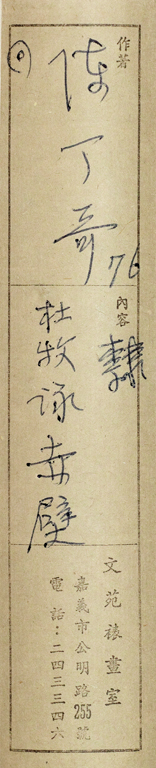 作者
陳丁奇 76
內容
隸
杜牧詠赤壁
文苑裱畫室
嘉義市公明路255號
電話：二四三三四六